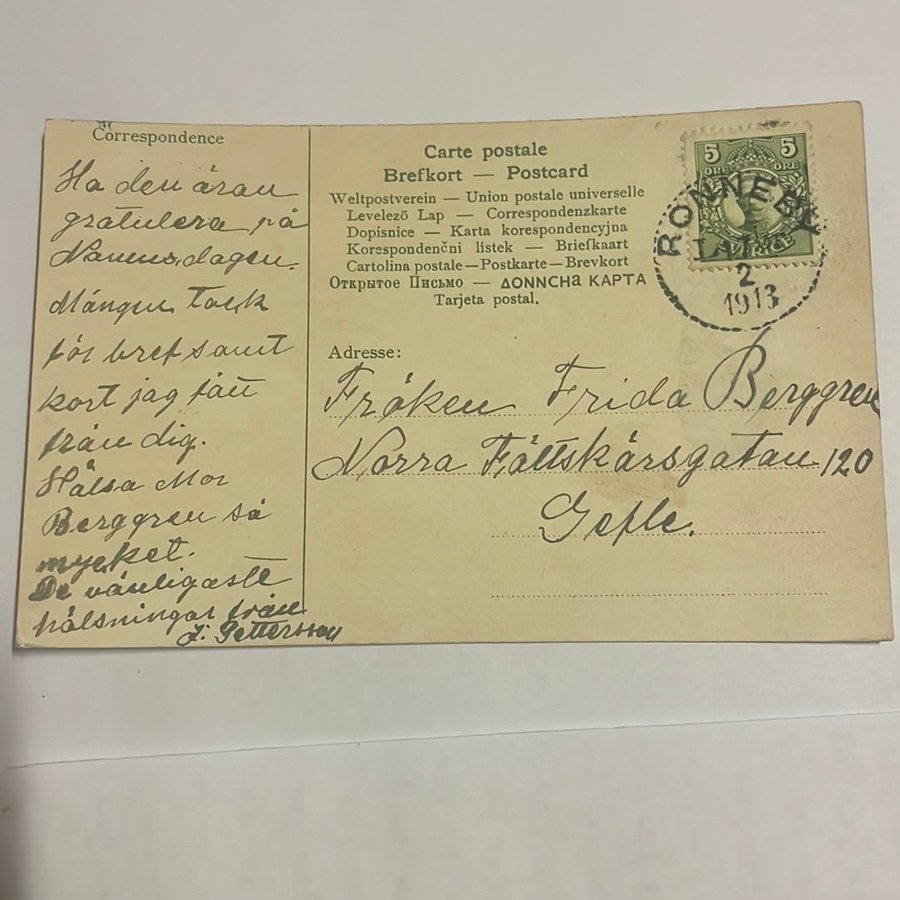 Correspondence
Ha den äran
gratulera på
Namensdagen.
Mången Tack
för bref samt
kort jag fått
från dig.
Hälsa Mor
Berggren så
mycket.
De vänligaste
hälsningar från
J. Pettersson
Carte postale
Brefkort — Postcard
Weltpostverein — Union postale universelle
Levelező Lap — Correspondenzkarte
Dopisnice — Karta korespondencyjna
Korespondenčni listek — Briefkaart
Cartolina postale — Postkarte — Brevkort
Открытое Письмо — ΔΟΝΝCHa КАРТА
Tarjeta postal.
5 5
ÖRE ÖRE
SVERIGE
RONNEBY
2
1913
Adresse:
Fröken Frida Berggren
Norra Fältskärsgatan 120
Gefle.